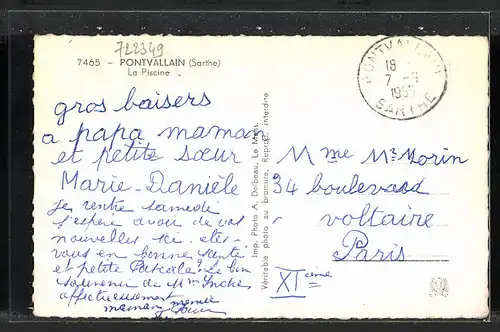 722349
7465 - PONTVALLAIN (Sarthe)
La Piscine
gros baisers
a papa maman
et petite sœur
Marie-Danièle
je rentre samedi
j'espère avoir de vos
nouvelles
vous en bonne santé
et petite Pascale? Le bon
souvenir de Mme
affectueusement
maman
Imp. Photo A. Dolbeau, Le Mans.
Véritable photo au bromure. Reprod. interdite
PONTVALLAIN
18
7 - 8
SARTHE
Mme Mr Morin
34 boulevard
voltaire
Paris
XIeme